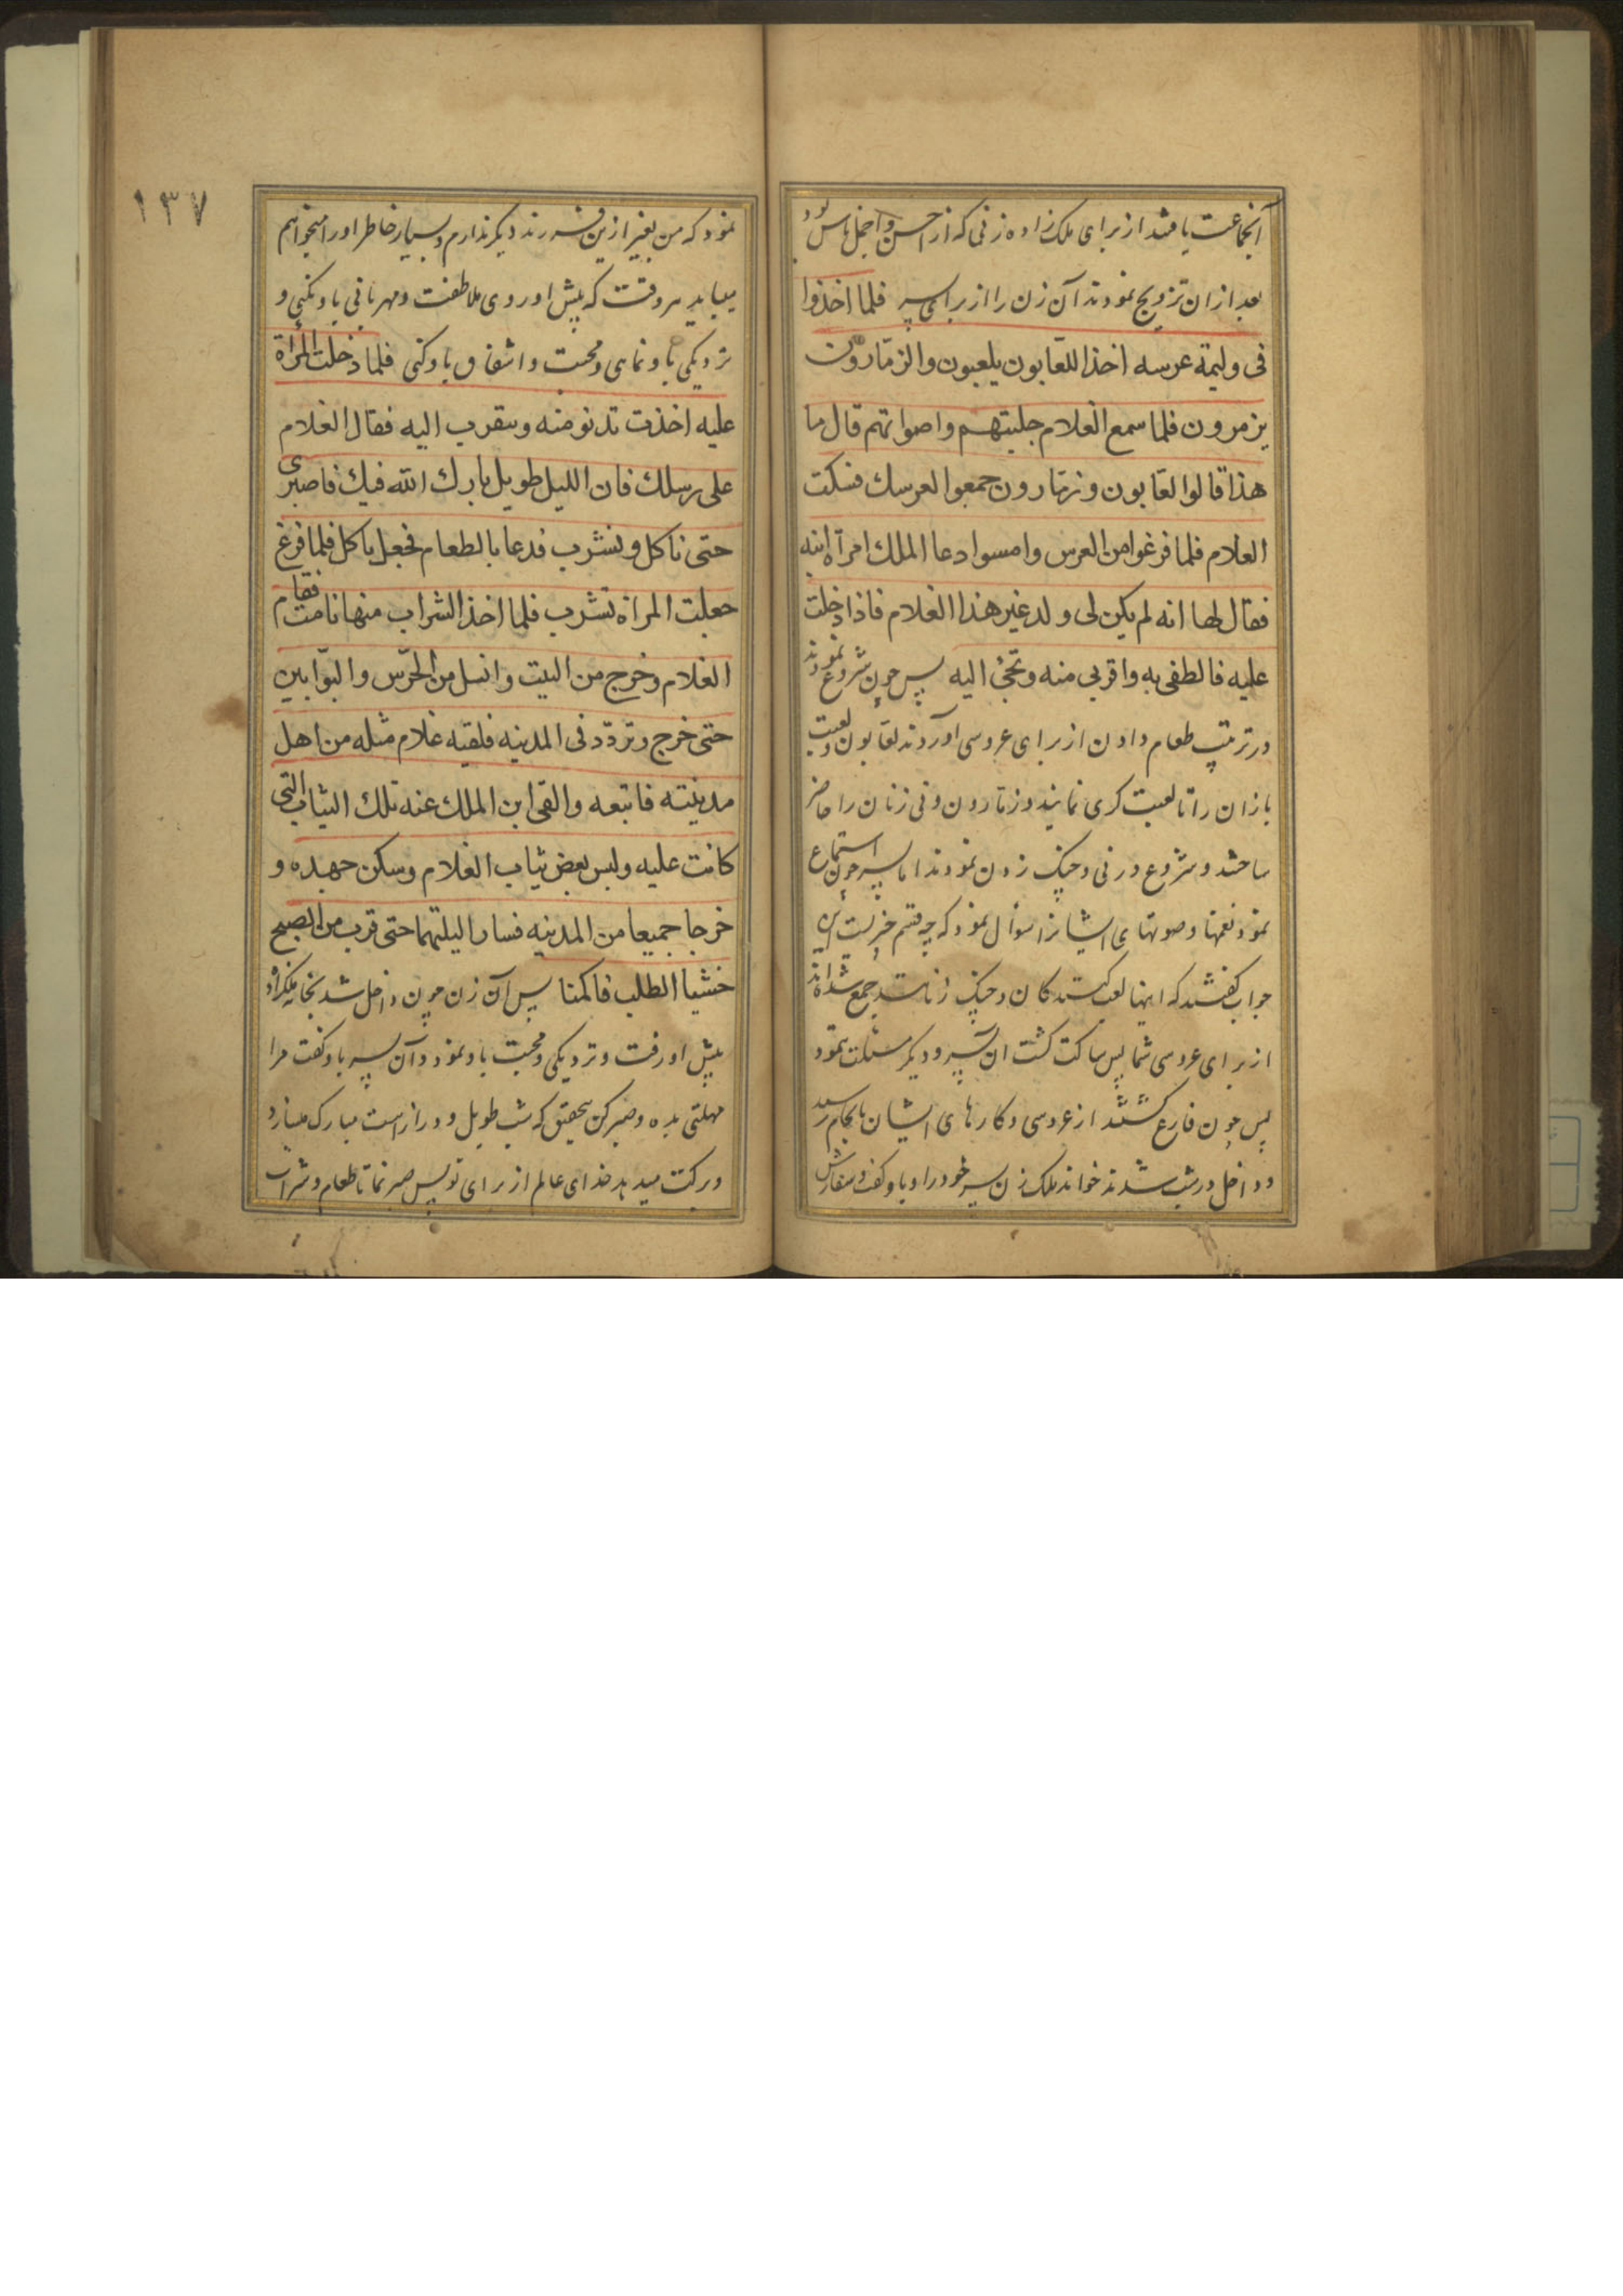 آنجماعت یافتند از برای ملک زاده زنی که از احسن و اجمل ناس بود
بعد ازان تزویج نمودند آن زن را از برای پسر فلما اخذوا
فی ولیمة عرسه اخذ اللعّابون یلعبون والزمّارون
یزمرون فلما سمع الغلام جلبتهم واصواتهم قال ما
هذا قالوا لعّابون وزمّارون جمعوا لعرسك فسكت
الغلام فلما فرغوا من العرس وامسوا دعا الملك امرأة ابنه
فقال لها انه لم یکن لی ولد غیر هذا الغلام فاذا دخلت
علیه فالطفی به واقربی منه وتحببی الیه پس چون شروع نمودند
در ترتیب طعام دادن از برای عروسی آوردند لعّابون ولعبت
بازان را تا لعبت کری نمایند وزمّارون ونی زنان را حاضر
ساختند وشروع در نی وچنک زدن نمودند اما پسر چون استماع
نمود نغمها وصوتهای ایشانرا سوال نمود که چه قسم خبریست این
جواب کفتند که اینها لعب کنندکان وچنک زنانند جمع شده اند
از برای عروسی شما پس ساکت کشت ان پسر ودیکر ننمود
پس چون فارغ کشتند از عروسی وکارهای ایشان بانجام رسید
وداخل در شب شدند خواند ملک زن پسر خود را وباو کفت وسفارش
١٣٧
نمود که من بغیر ازین فرزند دیکر ندارم وبسیار خاطر او را میخواهم
میباید هر وقت که پیش او روی ملاطفت ومهربانی باو بکنی و
نزدیکی باو نمایی ومحبت واشفاق باو کنی فلما دخلت المرأة
علیه اخذت تدنو منه وتتقرب الیه فقال الغلام
علی رسلك فان اللیل طویل بارك الله فیك فاصبری
حتی ناکل ونشرب فدعا بالطعام فجعل یاکل فلما فرغ
جعلت المراة تشرب فلما اخذ الشراب منها نامت فقام
الغلام وخرج من البیت وانسل من الحرّس والبوّابین
حتی خرج وتردّد فی المدینه فلقیه غلام مثله من اهل
مدینته فاتبعه والقی ابن الملك عنه تلك الثیاب التی
کانت علیه ولبس بعض ثیاب الغلام وسکن جهده و
خرجا جمیعا من المدینه فسارا لیلتهما حتی قرب من الصبح
خشیا الطلب فاکمنا پس آن زن چون داخل شد بخانه ملکزاده
پیش او رفت ونزدیکی ومحبت باو نمود وآن پسر باو کفت مرا
مهلتی بده وصبر کن بتحقیق که شب طویل ودراز است مبارک میسازد
وبرکت میدهد خدای عالم از برای تو پس صبر نما تا طعام وشراب